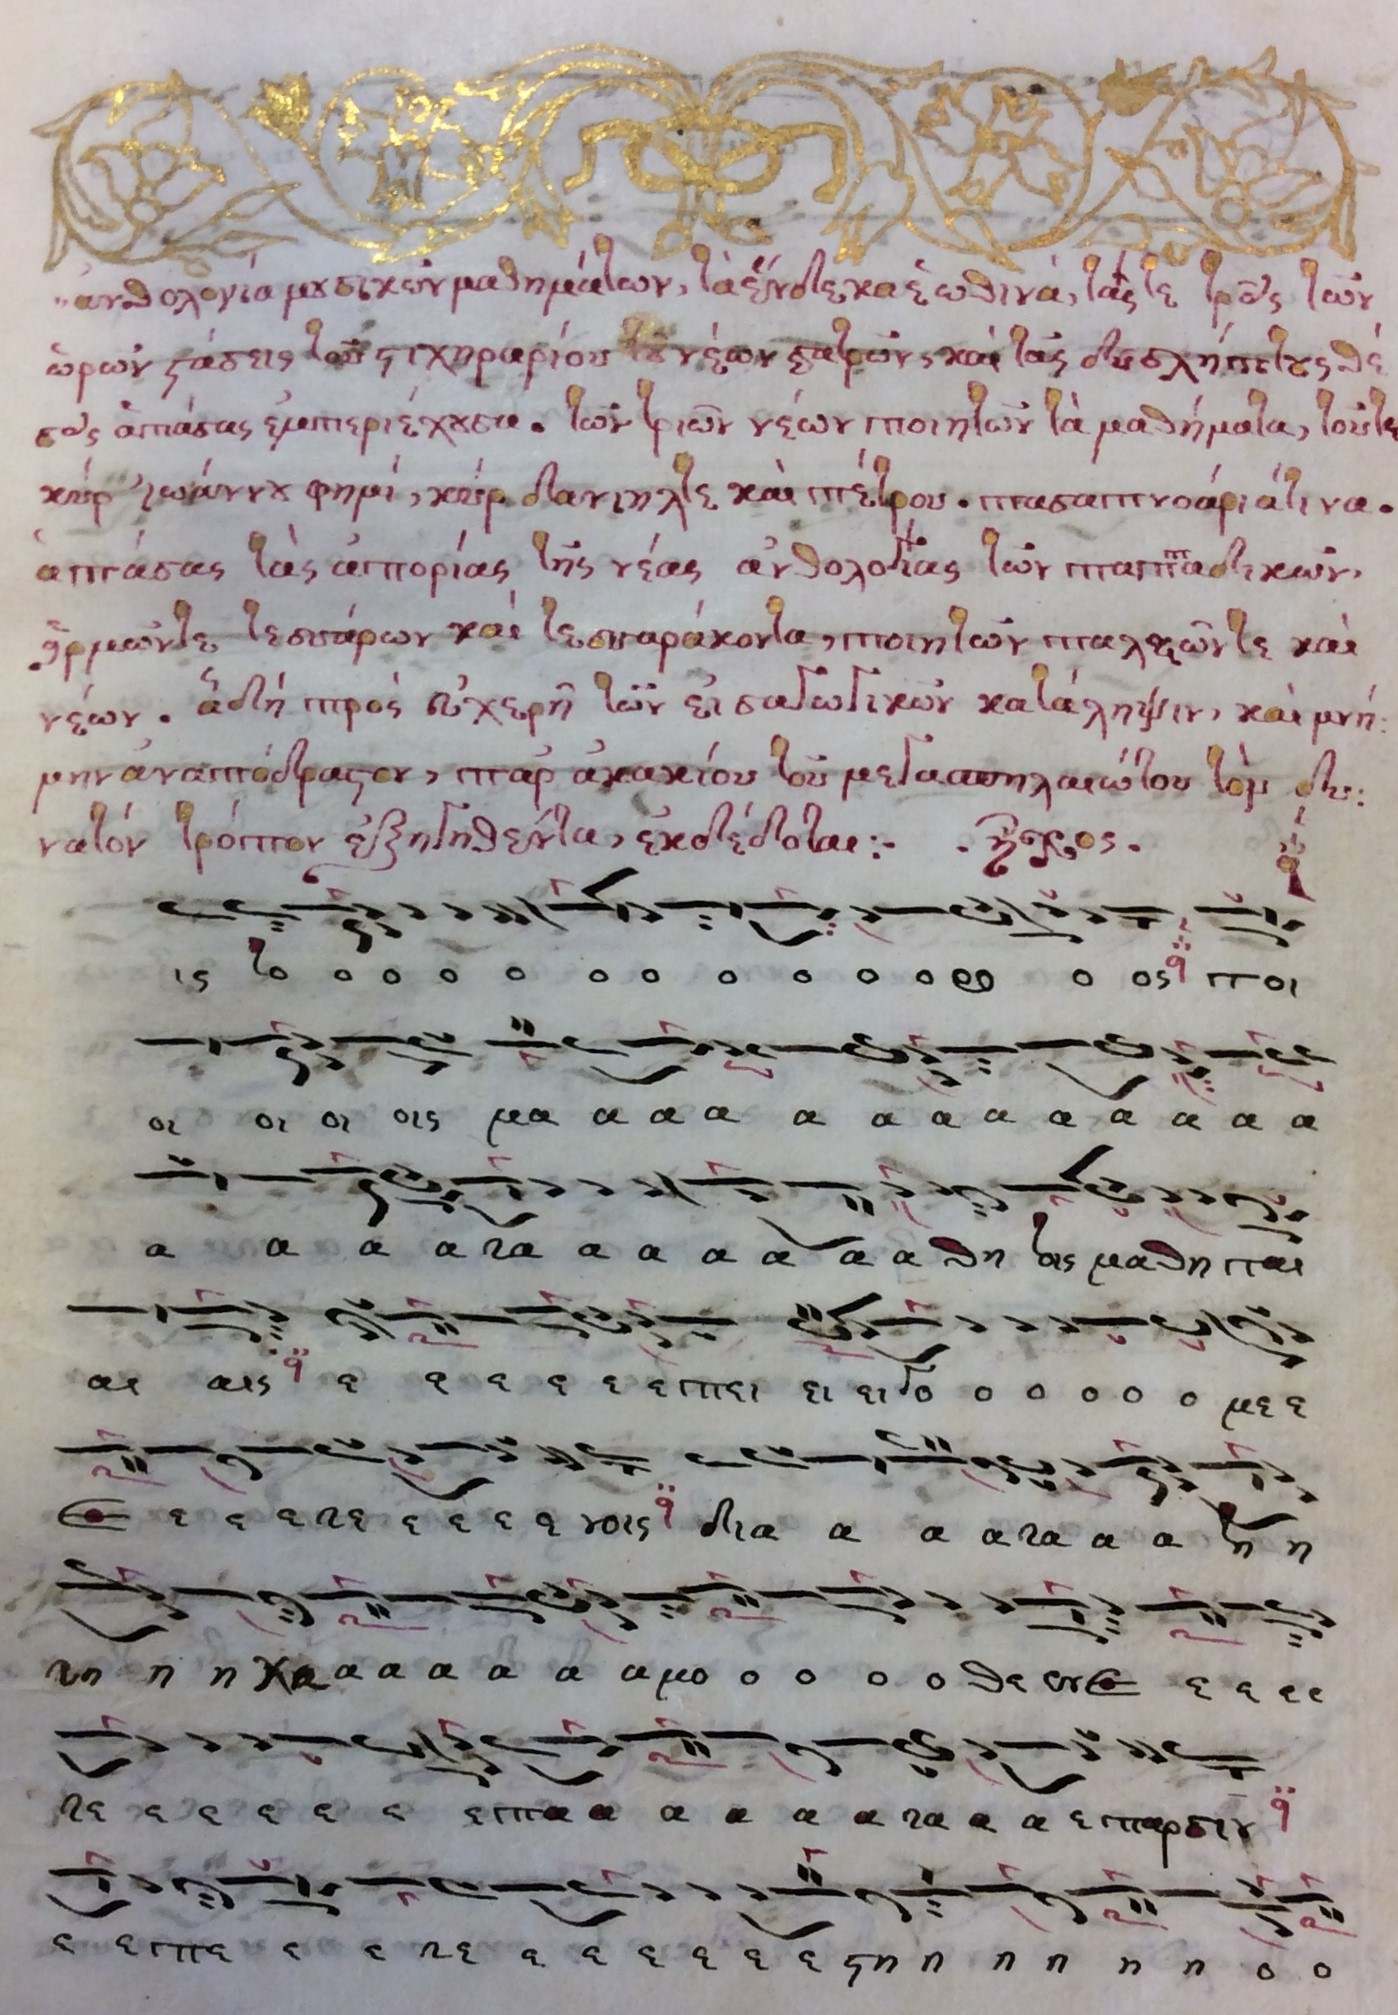 ἀνθολογία μουσικῶν μαθημάτων, τὰ ἕνδεκα ἑωθινά, τάς τε πρὸς τῶν
ὡρῶν στάσεις τοῦ στιχηραρίου τοῦ νέων πατρῶν, καὶ τὰς δυσλήπτους θέ
σεις ἁπάσας ἐμπεριέχουσα. τῶν τριῶν νέων ποιητῶν τὰ μαθήματα, τοῦτε
κὺρ ἰωάννου φημί, κὺρ δανιηλτε καὶ πέτρου. πασαπνοάρια τινα.
ἁπάσας τὰς ἀπορίας τῆς νέας ἀνθολογίας τῶν παππαδικῶν,
εἱρμῶντε τεσσάρων καὶ τεσσαράκοντα, ποιητῶν παλαιῶντε καὶ
νέων. ἃ δὴ πρὸς εὐχερῆ τῶν εἰσαγωγικῶν κατάληψιν, καὶ μνή
μην ἀναπόδραστον, παρ ἀκακίου τοῦ μεγασπηλαιώτου τὸν δυ
νατὸν τρόπον ἐξηγηθέντα, ἐκδέδοται: ἦχος
ις το ο ο ο ο ο ο ο ο ο ο ρο ο ος ποι
οι οι οι οις μα α α α α α α α α α α α α
α α α α γα α α α α α α θη ταις μαθη ται
αι αις ε ε ε ε ε ε πει ει ει γο ο ο ο ο ο με ε
ε ε ε ε γε ε ε ε ε νοις δια α α α γα α α τη η
γη η η χα α α α α α α μο ο ο ο ο θε εν ε ε ε ε ε
γε ε ε ε ε ε ε πα α α α α α γα α α ε παρσιν
ε ε πε ε ε γε ε ε ε ε ε ε στη η η η η η ο ο